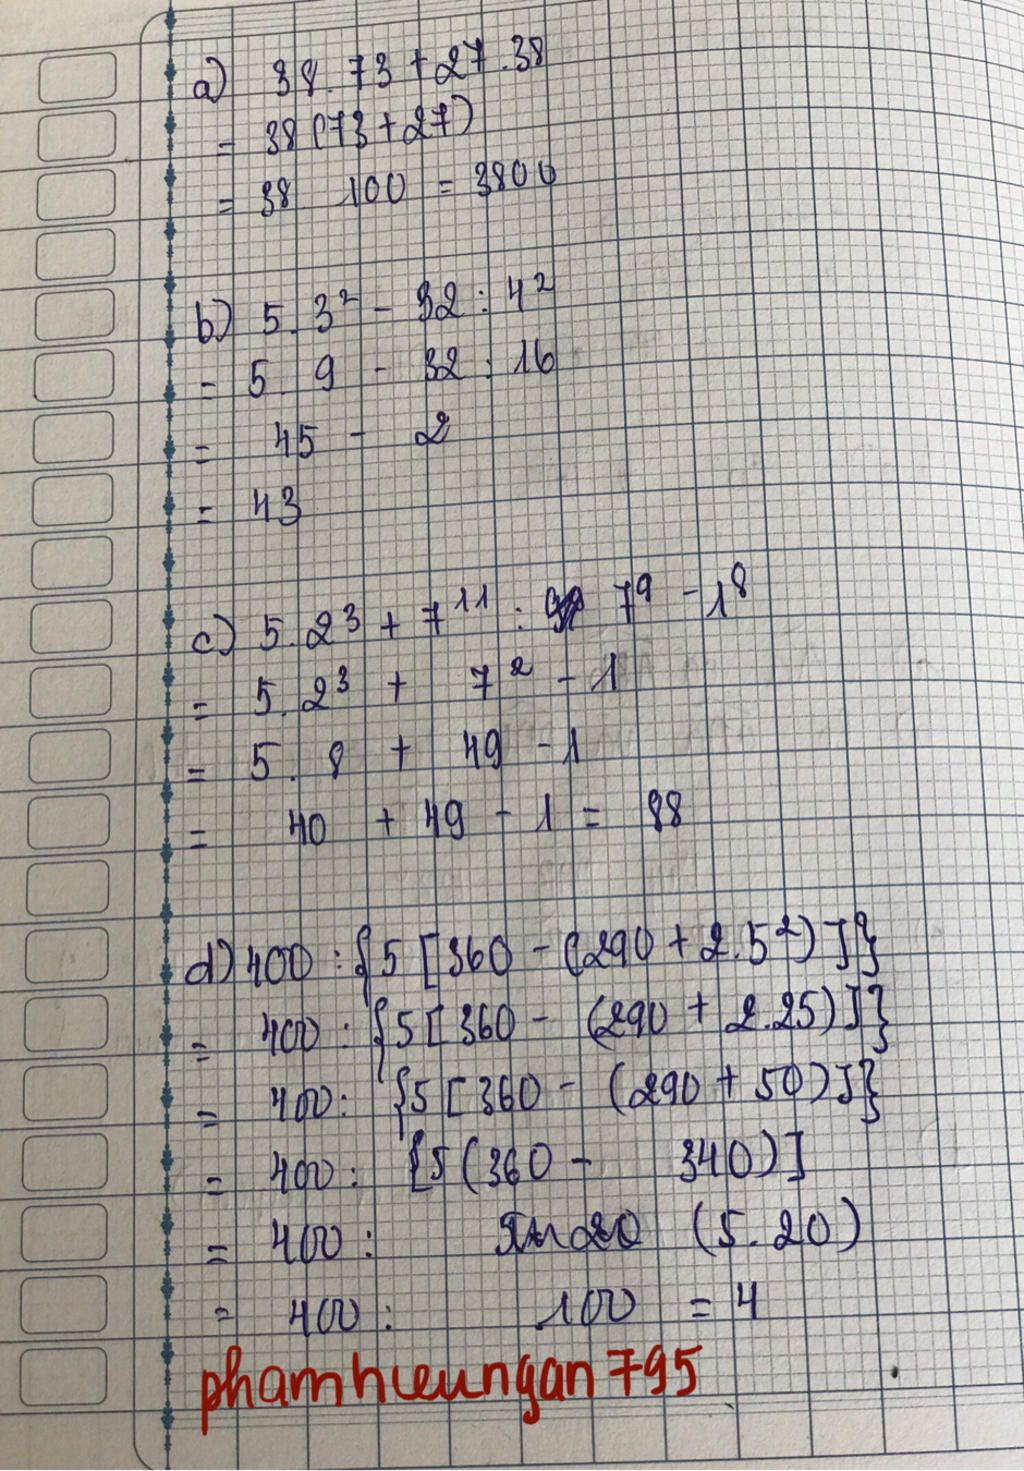 a) 38.73 + 27.38
= 38(73 + 27)
= 38 100 = 3800
b) 5.3² - 32 : 4²
= 5 . 9 - 32 : 16
= 45 - 2
= 43
c) 5.2³ + 7¹¹ : 7⁹ - 1⁸
= 5.2³ + 7² - 1
= 5 . 8 + 49 - 1
= 40 + 49 - 1 = 88
d) 400 : {5 [360 - (290 + 2.5²)]}
= 400 : {5 [360 - (290 + 2.25)]}
= 400 : {5 [360 - (290 + 50)]}
= 400 : [5(360 - 340)]
= 400 : (5.20)
= 400 : 100 = 4
phamhieungan795